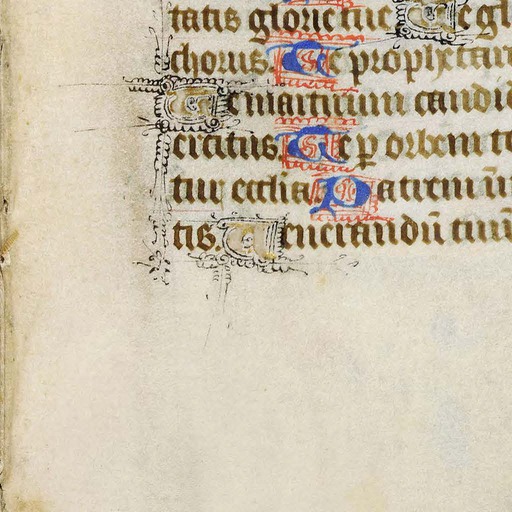 tatis glorie tue Te gl
chorus. Te prophetar
Te martirum candid
ercitus. Te p orbem te
tur ecclia Patrem in
tis. Venerandū tuū